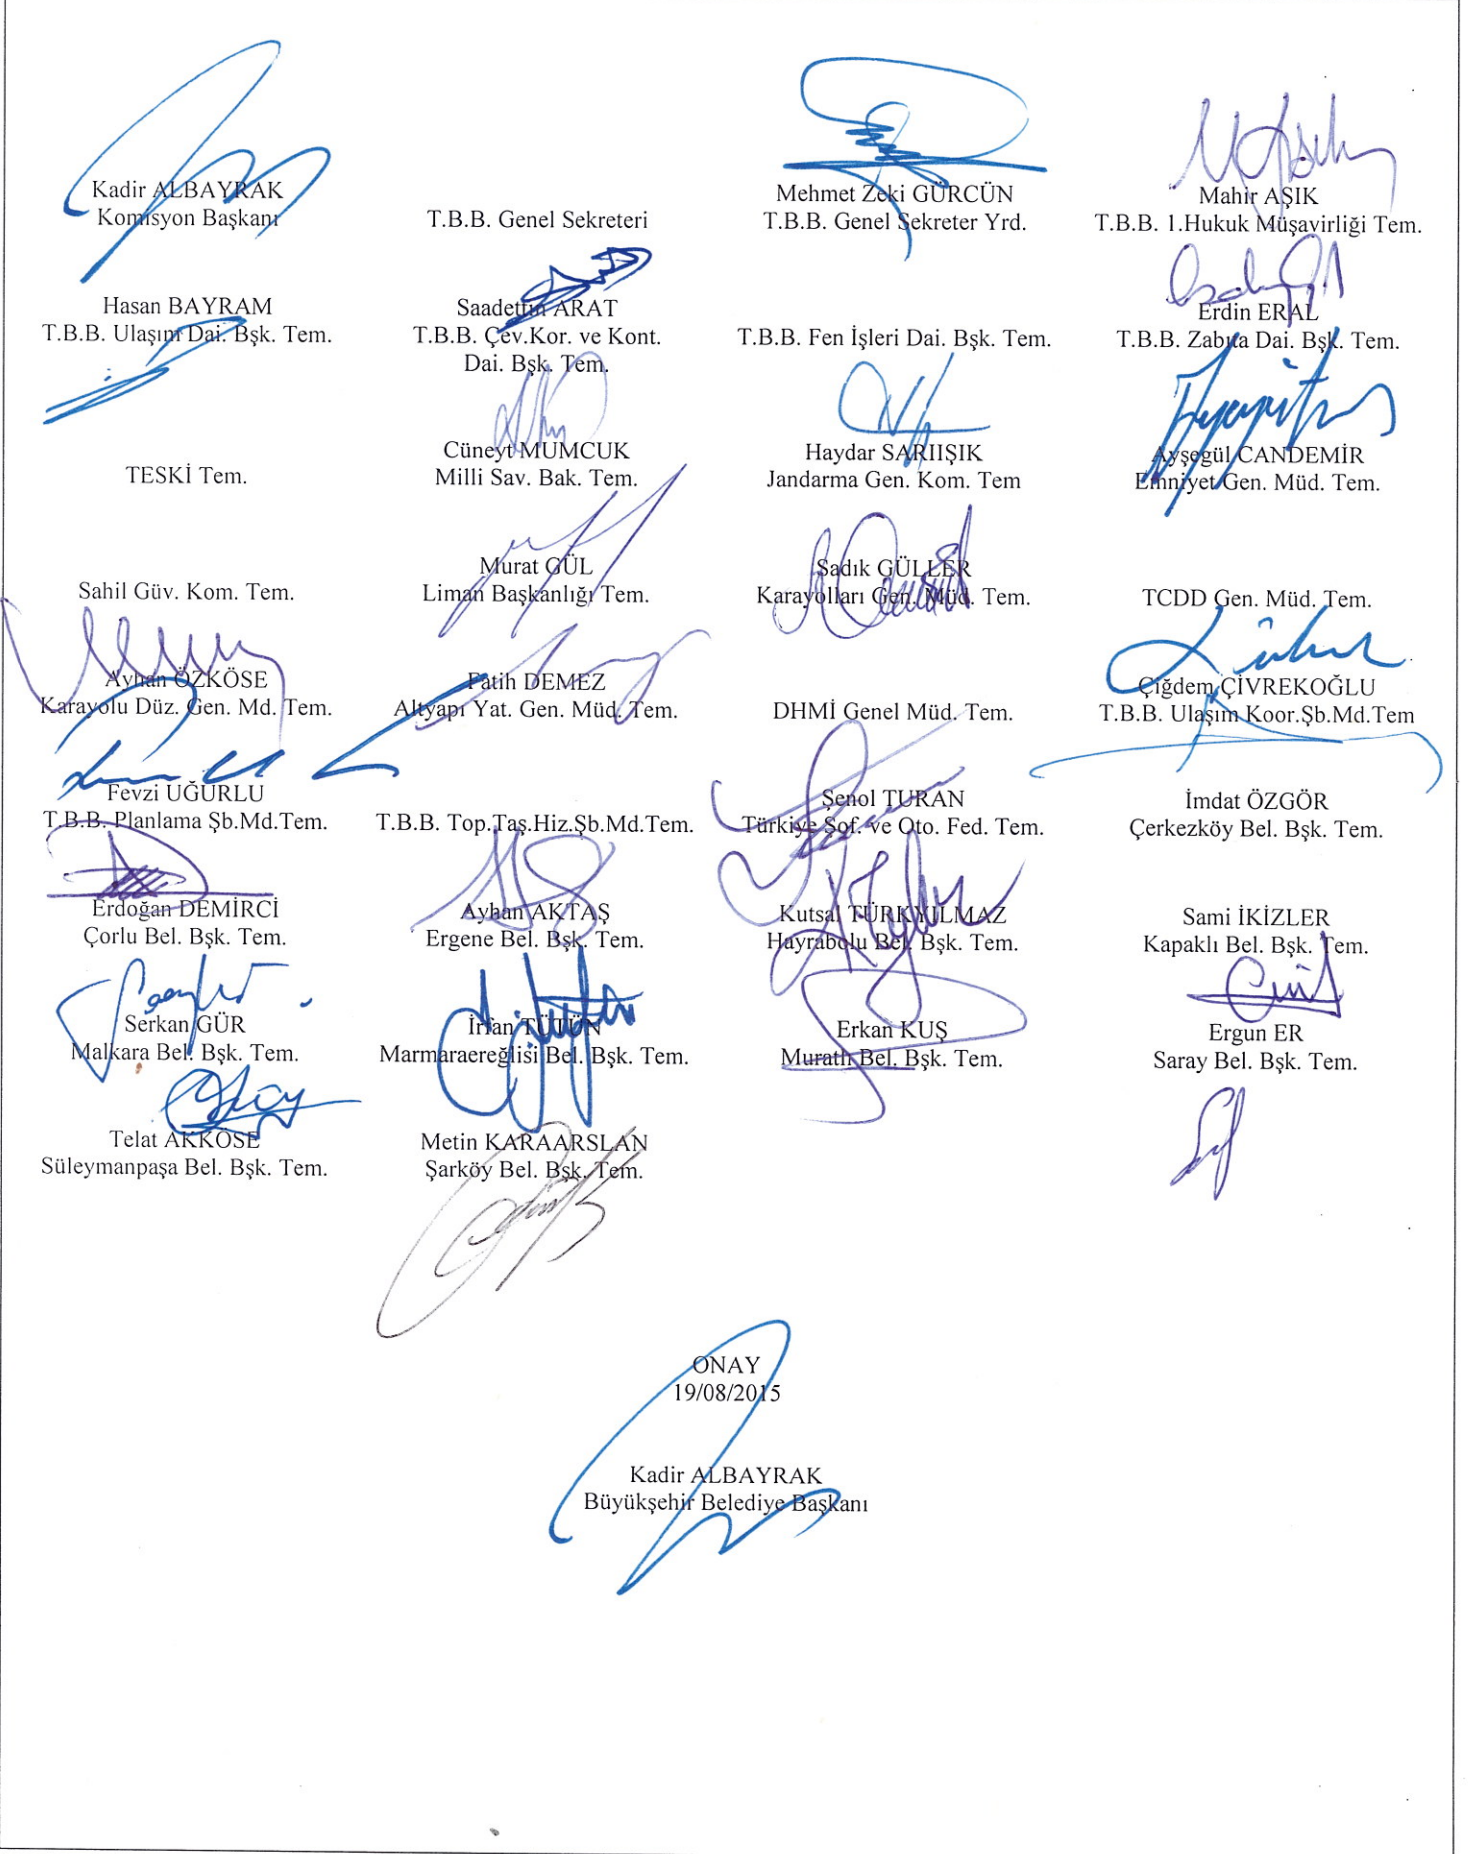 Kadir ALBAYRAK
Komisyon Başkanı
T.B.B. Genel Sekreteri
Mehmet Zeki GÜRCÜN
T.B.B. Genel Sekreter Yrd.
Mahir AŞIK
T.B.B. 1.Hukuk Müşavirliği Tem.
Hasan BAYRAM
T.B.B. Ulaşım Dai. Bşk. Tem.
Saadettin ARAT
T.B.B. Çev.Kor. ve Kont.
Dai. Bşk. Tem.
T.B.B. Fen İşleri Dai. Bşk. Tem.
Erdin ERAL
T.B.B. Zabıta Dai. Bşk. Tem.
TESKİ Tem.
Cüneyt MUMCUK
Milli Sav. Bak. Tem.
Haydar SARIIŞIK
Jandarma Gen. Kom. Tem
Ayşegül CANDEMİR
Emniyet Gen. Müd. Tem.
Sahil Güv. Kom. Tem.
Murat GÜL
Liman Başkanlığı Tem.
Sadık GÜLLER
Karayolları Gen. Müd. Tem.
TCDD Gen. Müd. Tem.
Ayhan ÖZKÖSE
Karayolu Düz. Gen. Md. Tem.
Fatih DEMEZ
Altyapı Yat. Gen. Müd. Tem.
DHMİ Genel Müd. Tem.
Çiğdem ÇİVREKOĞLU
T.B.B. Ulaşım Koor.Şb.Md.Tem
Fevzi UĞURLU
T.B.B. Planlama Şb.Md.Tem.
T.B.B. Top.Taş.Hiz.Şb.Md.Tem.
Şenol TURAN
Türkiye Şof. ve Oto. Fed. Tem.
İmdat ÖZGÖR
Çerkezköy Bel. Bşk. Tem.
Erdoğan DEMİRCİ
Çorlu Bel. Bşk. Tem.
Ayhan AKTAŞ
Ergene Bel. Bşk. Tem.
Kutsal TÜRKYILMAZ
Hayrabolu Bel. Bşk. Tem.
Sami İKİZLER
Kapaklı Bel. Bşk. Tem.
Serkan GÜR
Malkara Bel. Bşk. Tem.
İrfan TÜTÜN
Marmaraereğlisi Bel. Bşk. Tem.
Erkan KUŞ
Muratlı Bel. Bşk. Tem.
Ergun ER
Saray Bel. Bşk. Tem.
Telat AKKÖSE
Süleymanpaşa Bel. Bşk. Tem.
Metin KARAARSLAN
Şarköy Bel. Bşk. Tem.
ONAY
19/08/2015
Kadir ALBAYRAK
Büyükşehir Belediye Başkanı